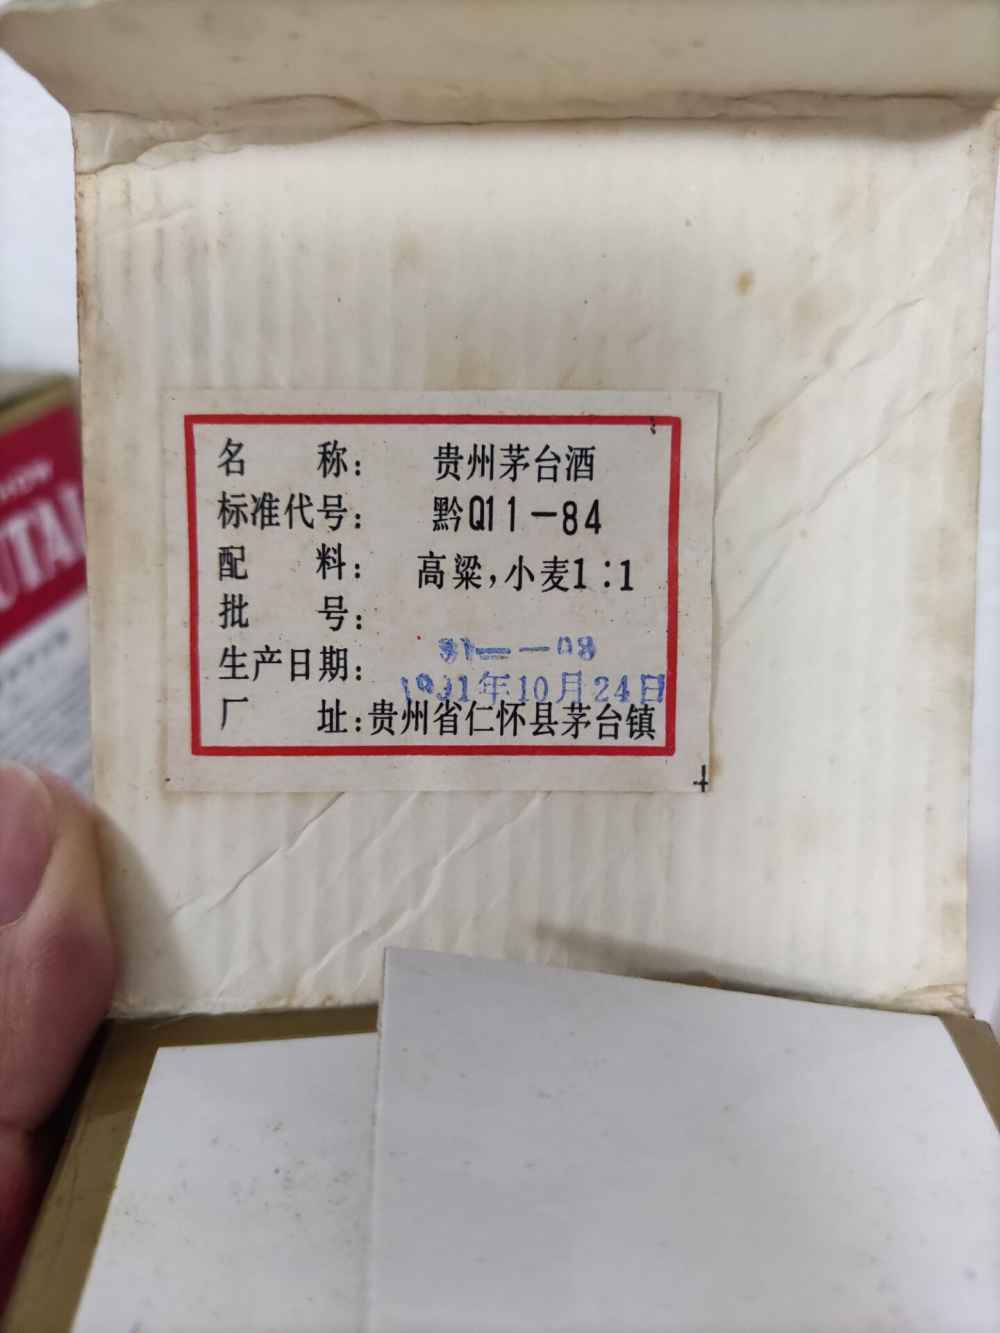 名 称: 贵州茅台酒
标准代号: 黔Q11-84
配 料: 高粱,小麦1:1
批 号:
91—-08
生产日期:
1991年10月24日
厂 址:贵州省仁怀县茅台镇
UTAI